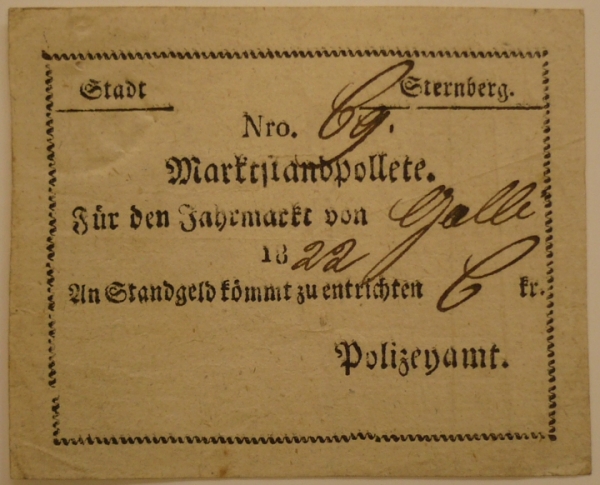 Stadt Sternberg.
Nro. 69.
Marktstandpollete.
Für den Jahrmarkt von Galli
1822
An Standgeld kömmt zu entrichten 6 kr.
Polizeyamt.